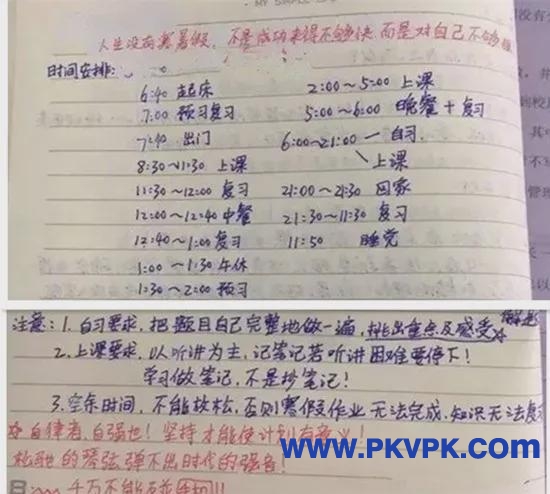 MY SIMPLE
人生没有寒暑假,不是成功来得不够快,而是对自己不够狠
时间安排:
6:40 起床
7:00 预习复习
7:40 出门
8:30~11:30 上课
11:30~12:00 复习
12:00~12:40 中餐
12:40~1:00 复习
1:00~1:30 午休
1:30~2:00 预习
2:00~5:00 上课
5:00~6:00 晚餐+复习
6:00~21:00 自习
上课
21:00~21:30 回家
21:30~11:30 复习
11:50 睡觉
注意:1.自习要求,把题目自己完整地做一遍,挑出重点及感受
2.上课要求,以听讲为主,记笔记若听讲困难要停下!
学习做笔记,不是抄笔记!
3.空余时间,不能放松,否则寒假作业无法完成,知识无法复习
☆自律者,自强也!坚持才能使计划有意义!
松弛的琴弦弹不出时代的强音!
千万不能玩手机!!!
www.PKVPK.com